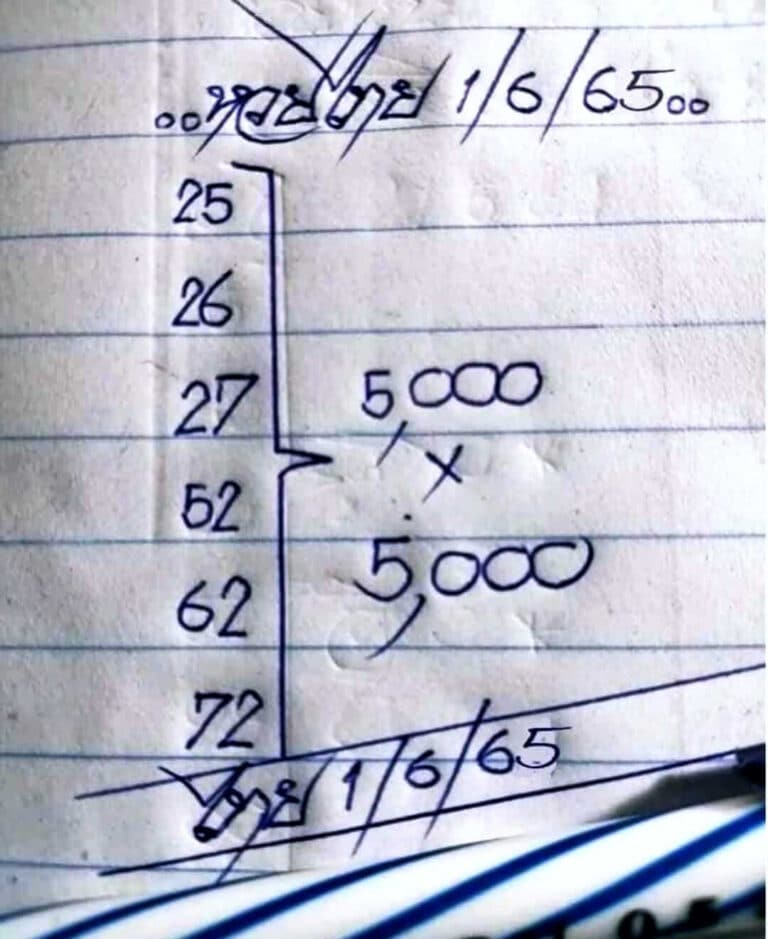 ..หวยไทย 1/6/65..
25
26
27
52
62
72
5,000
x
5,000
ไทย 1/6/65